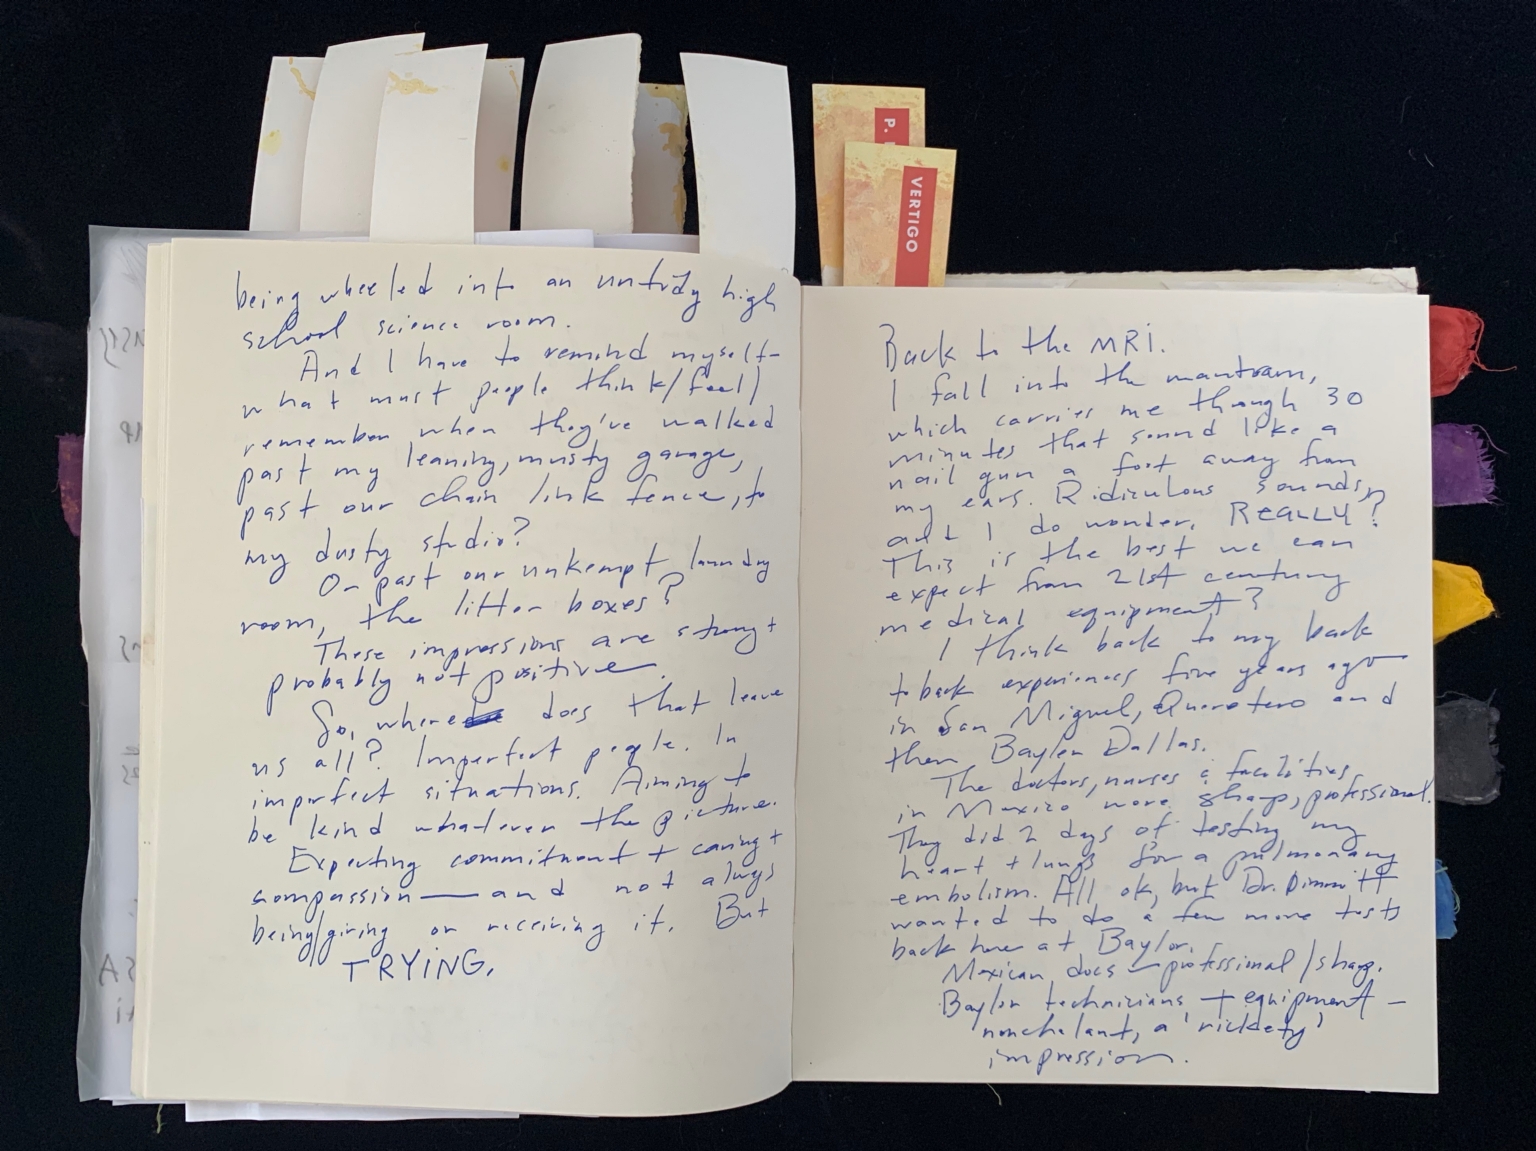 P.
VERTIGO
being wheeled into an untidy high
school science room.
And I have to remind myself—
what must people think/feel/
remember when they've walked
past my leaning, musty garage,
past our chain link fence, to
my dusty studio?
Or past our unkempt laundry
room, the litter boxes?
These impressions are strong +
probably not positive.
So, where does that leave
us all? Imperfect people. In
imperfect situations. Aiming to
be kind whatever the picture.
Expecting commitment + caring +
compassion — and not always
being/giving or receiving it. But
TRYING.
Back to the MRI.
I fall into the mantram,
which carries me through 30
minutes that sound like a
nail gun a foot away from
my ears. Ridiculous sounds,
and I do wonder. REALLY?
This is the best we can
expect from 21st century
medical equipment?
I think back to my back
to back experiences five years ago
in San Miguel, Queretero and
then Baylor Dallas.
The doctors, nurses & facilities
in Mexico were sharp, professional.
They did 2 days of testing my
heart + lungs for a pulmonary
embolism. All ok, but Dr. Dimmitt
wanted to do a few more tests
back here at Baylor.
Mexican docs — professional/sharp.
Baylor technicians + equipment —
nonchalant, a 'rickety'
impression.